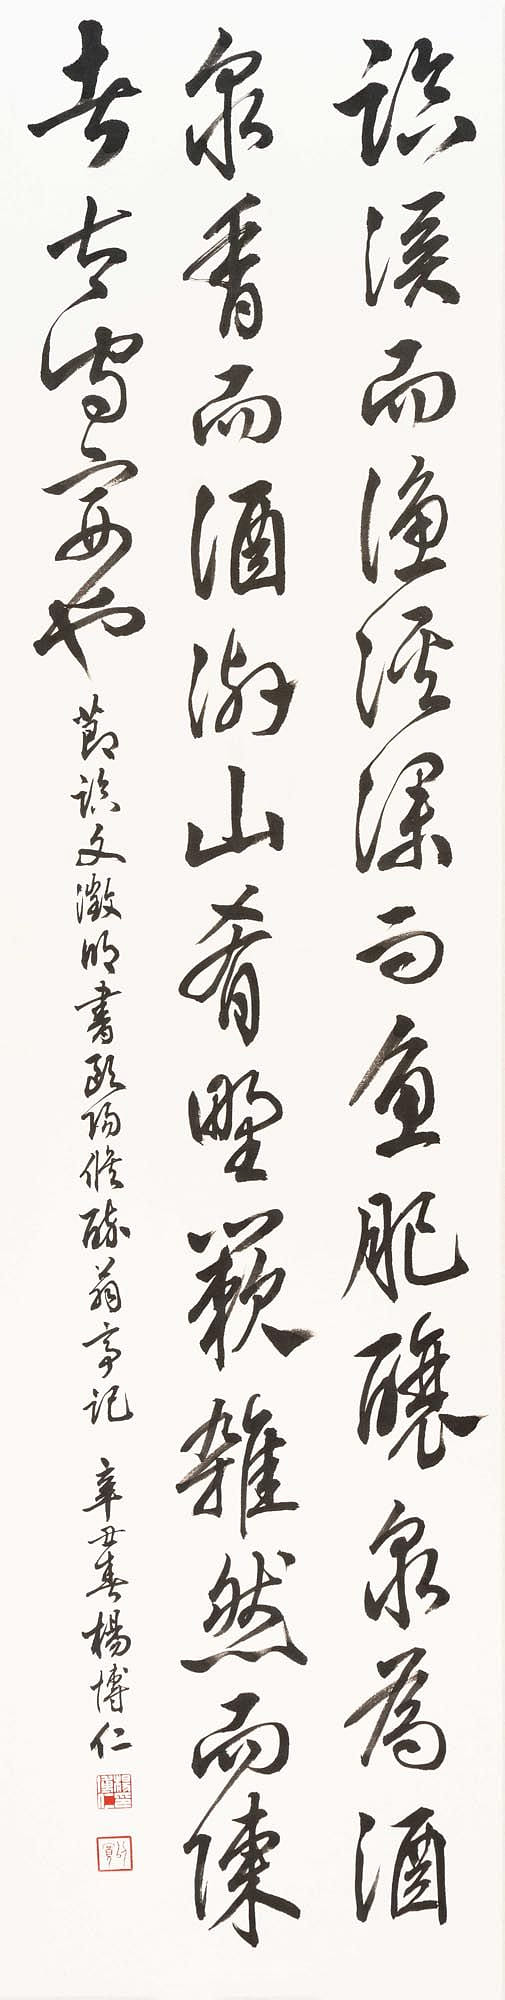 臨溪而漁溪深而魚肥釀泉為酒
泉香而酒洌山肴野蔌雜然而陳
者太守宴也
節臨文徵明書歐陽修醉翁亭記 辛丑春楊博仁